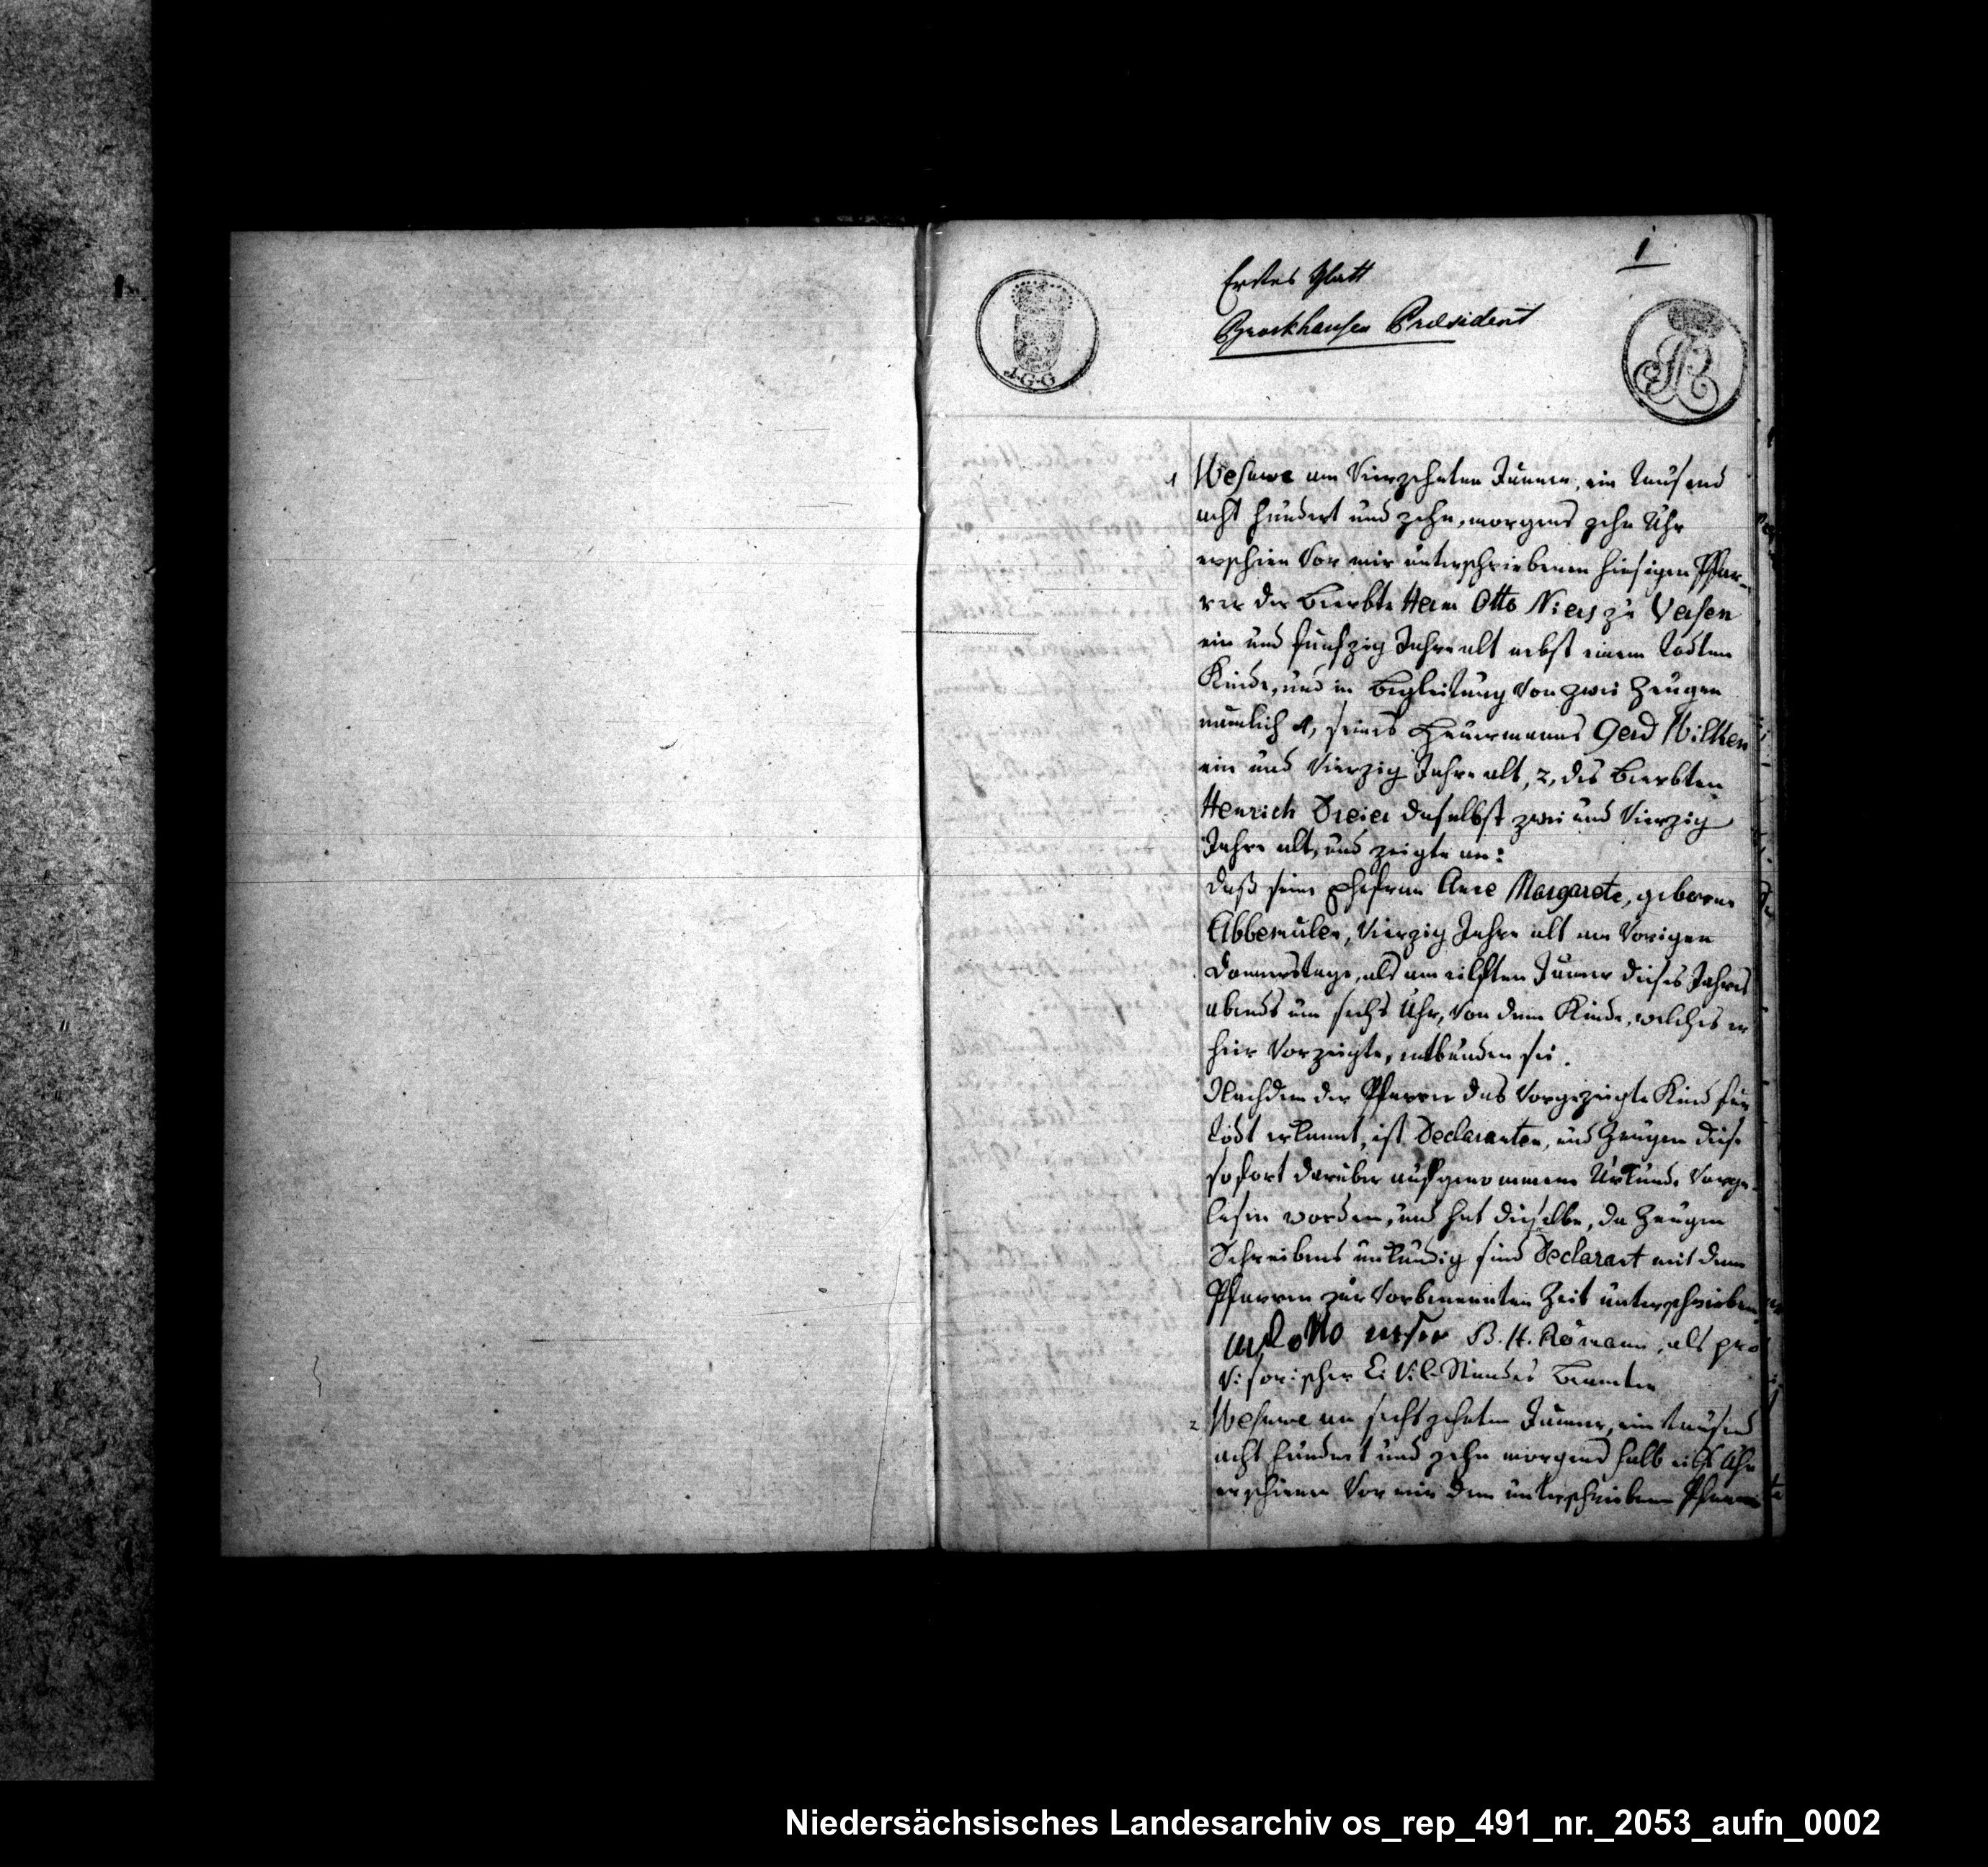 1
Erstes Blatt
Brockhausen Præsident
J.G.G
1 Wesuwe am Vierzehnten Jänner, ein tausend
acht hundert und zehn, morgens zehn Uhr
erschien vor mir unterschriebenen hiesigen Pfar-
rer der Beerbte Herm Otto Niers zu Versen
ein und funfzig Jahre alt nebst einem todten
Kinde, und in Begleitung von zwei Zeugen
nämlich 1, seines Heuermanns Gerd Wilken
ein und vierzig Jahre alt, 2, des Beerbten
Henrich Dreier daselbst zwei und vierzig
Jahre alt, und zeigte an:
daß seine Ehefrau Anne Margarete, geborene
Abbemulen, vierzig Jahre alt am vorigen
Donnerstage, als am eilften Jänner dieses Jahres
abends um sechs Uhr, von dem Kinde, welches er
hier vorzeigte, entbunden sei.
Nachdem der Pfarrer das vorgezeigte Kind für
todt erkannt, ist Declaranten, und Zeugen diese
sofort darüber aufgenommene Urkunde vorge-
lesen worden, und hat dieselbe, da Zeugen
Schreibens unkundig sind Declarant mit dem
Pfarrer zur vorbenennten Zeit unterschrieben
otto B. H. Römann, als pro
visorischer Civil-Standes Beamter
2 Wesuwe am sechszehnten Jänner, ein tausend
acht hundert und zehn morgens halb eilf Uhr
erschienen vor mir dem unterschriebenen Pfarrer
Niedersächsisches Landesarchiv os_rep_491_nr._2053_aufn_0002